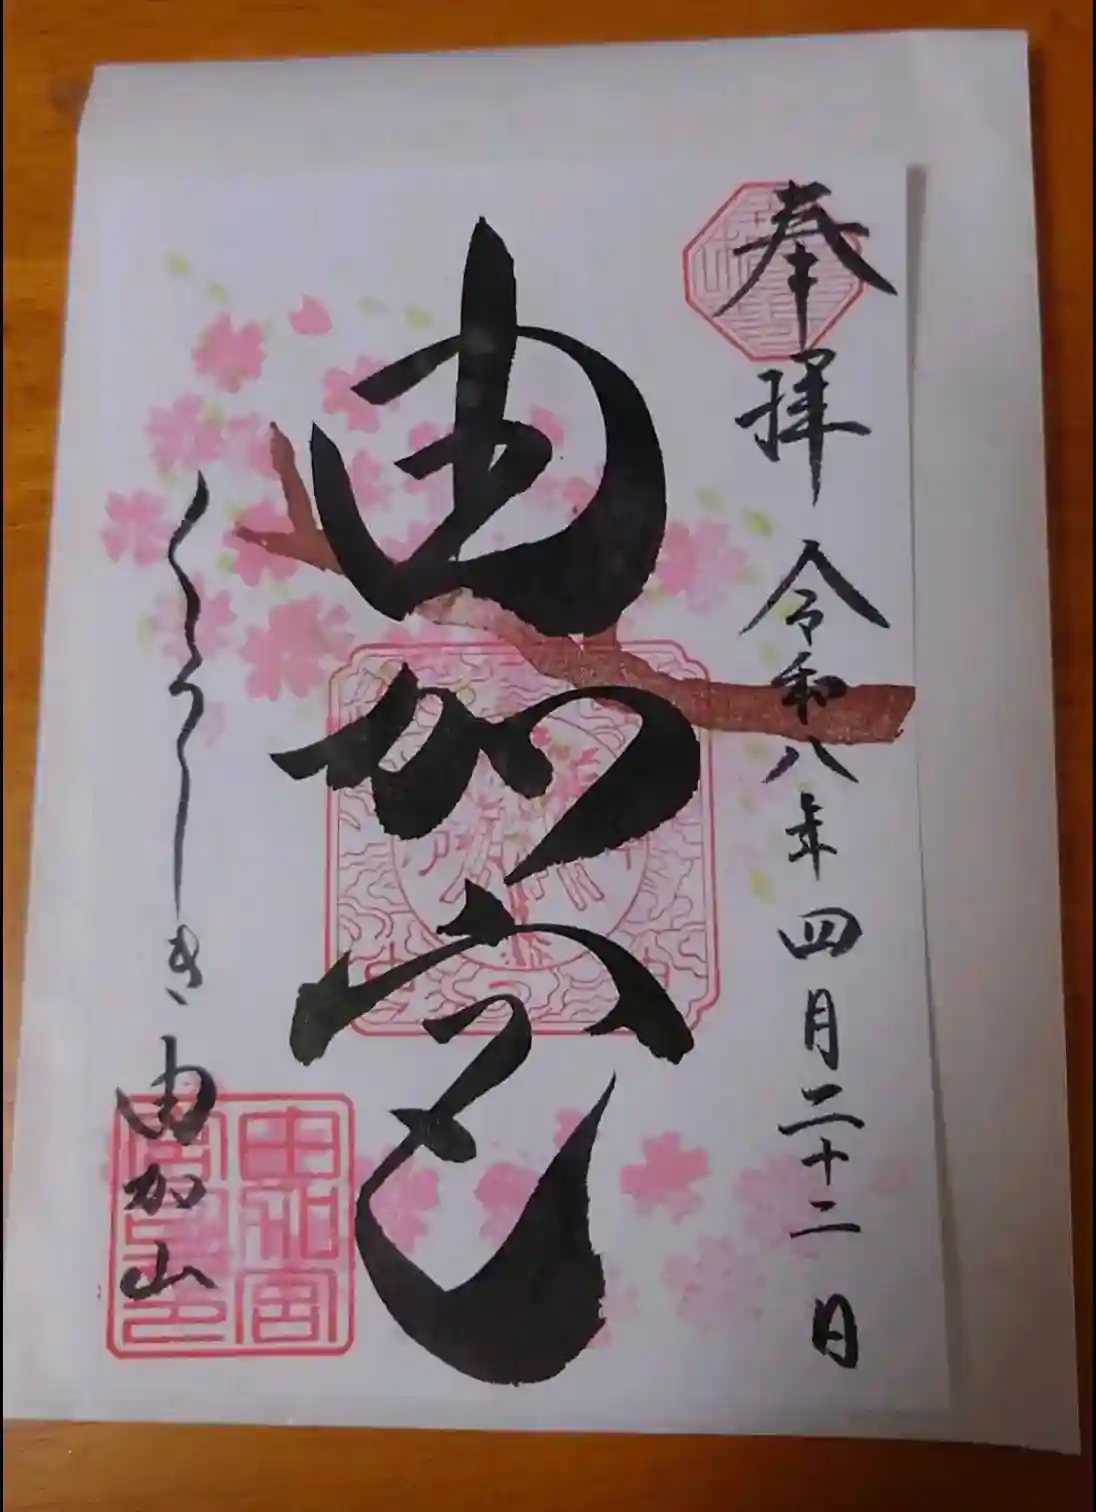 奉拝
令和八年四月二十二日
由加宮
くらしき 由加山